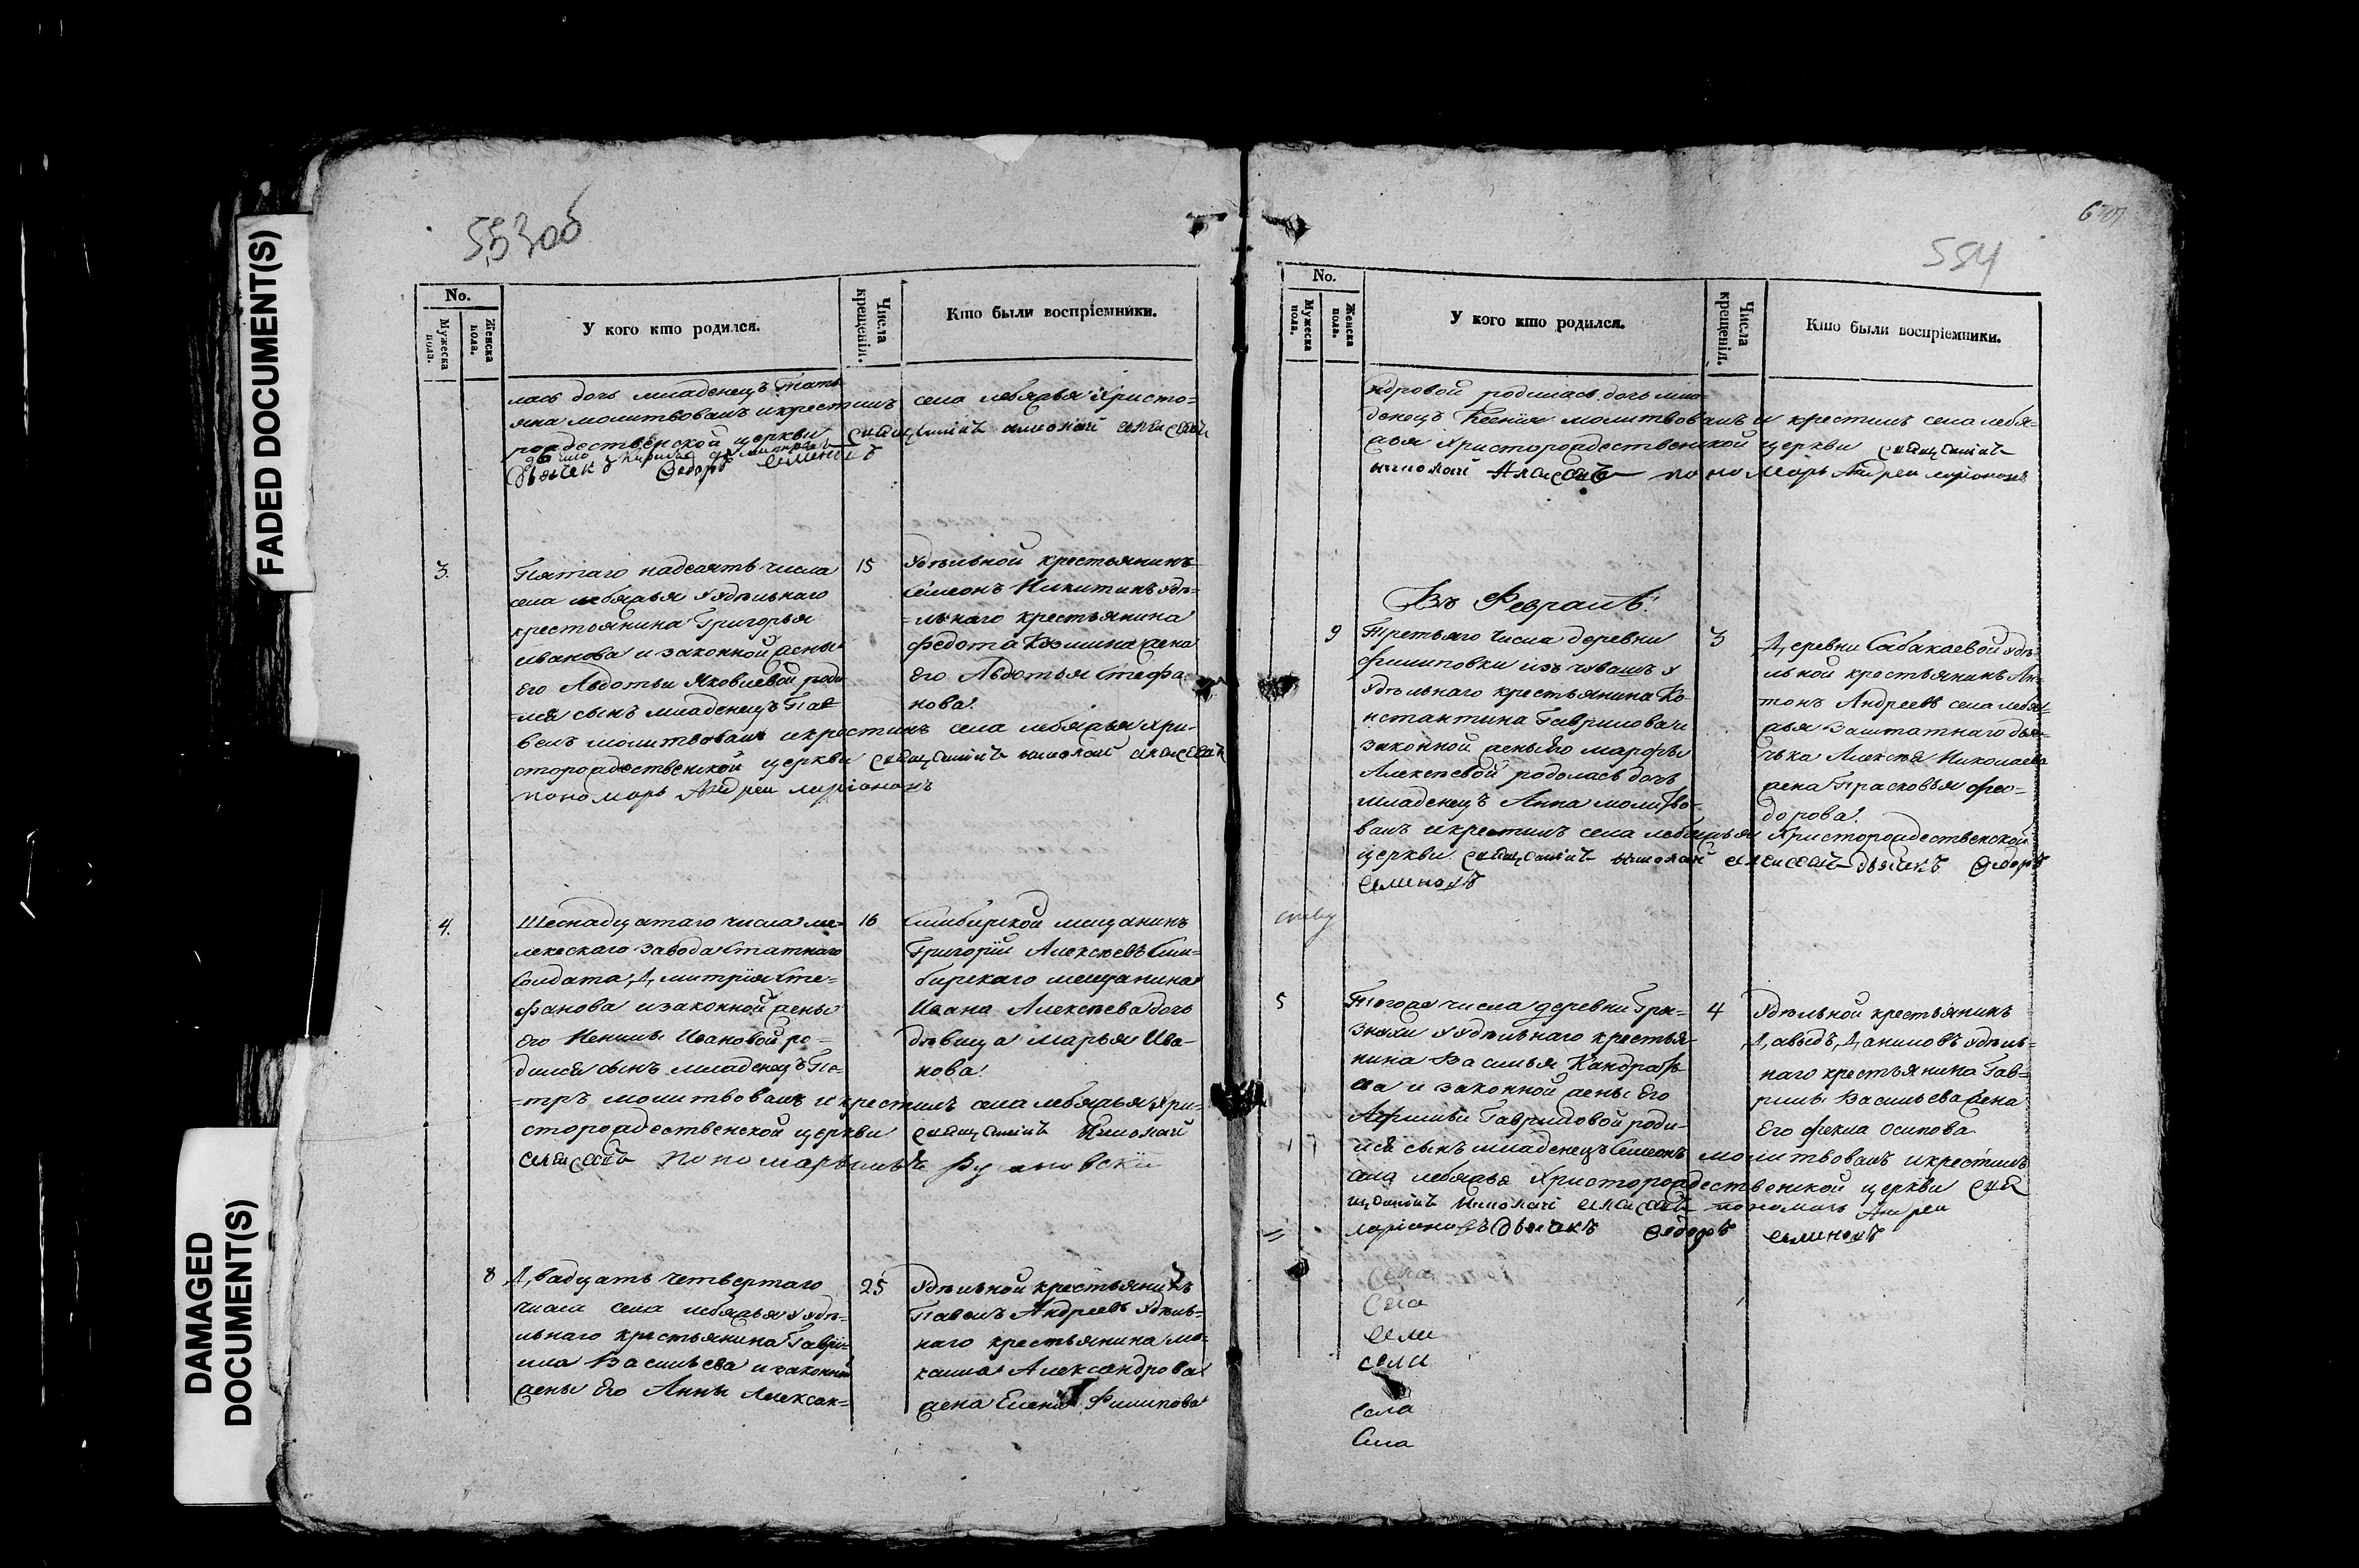 FADED DOCUMENT(S)
DAMAGED
DOCUMENT(S)
553об
No.
Мужеска пола.
Женска пола.
У кого кто родился.
Числа крещенія.
Кто были воспріемники.
лась дочь младенецъ Тать
яна молитвовалъ и крестилъ села лебяжья Христо=
рождественской церкви священникъ николай алексеевъ
дьячекъ Федоръ семеновъ
3.
Пятаго надесять числа
села лебяжья у удѣльнаго
крестьянина Григорья
иванова и законной жены
его Авдотьи Яковлевой роди
лся сынъ младенецъ Па=
велъ молитвовалъ и крестилъ села лебяжья Хри-
сторождественской церкви священникъ николай алексеевъ
пономарь Андреи ларионовъ
15
Удѣльной крестьянинъ
Семеонъ Никитинъ удѣ=
=льнаго крестьянина
Федота Козмина жена
его Авдотья Стефа
нова.
4.
Шеснадцатаго числа ме=
лекескаго завода Статнаго
Солдата Дмитрія Сте=
фанова и законной жены
его Ненилы Ивановой ро=
дился сынъ младенецъ Пе=
=тръ молитвовалъ и крестилъ села лебяжья Хри=
сторождественской церкви священникъ Николай
алексеевъ пономарь
16
Симбирской мещанинъ
Григорій Алексѣевъ Сим=
бирскаго мещанина
Ивана Алексѣева дочь
дѣвица Марья Ива=
нова.
8
Двадцать четвертаго
числа села лебяжья у удѣ=
льнаго крестьянина Гаври=
ила Васильева и законной
жены его Анны Алексан=
25
Удѣльной крестьянинъ
Павелъ Андреевъ удѣль=
наго крестьянина ма=
каила Александрова
жена Елена Филипова
554
No.
Мужеска пола.
Женска пола.
У кого кто родился.
Числа крещенія.
Кто были воспріемники.
ндровой родилась дочь мла
денецъ Ксенія молитвовалъ и крестилъ села лебя=
жья Христорождественской церкви священникъ
николай Алексеевъ пономарь Андреи ларионовъ
Въ Февралѣ.
9
Третьяго числа деревни
филиповки изъ чувашъ у
удѣльнаго крестьянина Ко
нстантина Гаврилова и
законной жены его марфы
Алексѣевой родолась дочь
младенецъ Анна молитво=
валъ и крестилъ села лебяжья Христорождественской
церкви священникъ николай алексеевъ дьячекъ Федоръ
семеновъ
3
Деревни Сабакаевой удѣ
льной крестьянинъ Ан=
тонъ Андреевъ села лебя=
жья заштатнаго дья=
чька Алексѣя Николаева
жена Прасковья фео=
дорова.
5
Тогоже числа деревни Гря=
знухи у удѣльнаго крестья
нина Василья Кандрать
ева и законной жены его
Афимьи Гавриловой роди=
лся сынъ младенецъ Семеонъ молитвовалъ и крестилъ
села лебяжья Христорождественской церкви свя
щенникъ Николай алексеевъ пономарь Андреи
ларионовъ дьячекъ Федоръ семеновъ
4
Удѣльной крестьянинъ
Давыдъ Даниловъ удѣль=
наго крестьянина Гав=
рилы Васильева жена
его фекла Осипова
Села
Села
Сели
сели
села
Села